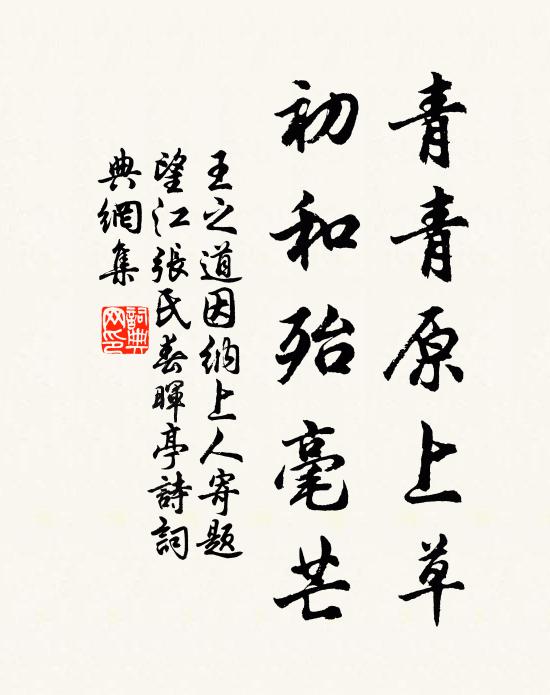 青青原上草
初和殆毫芒
王之道因纳上人寄题
望江張氏春暉亭詩詞
典網集
詞典网印